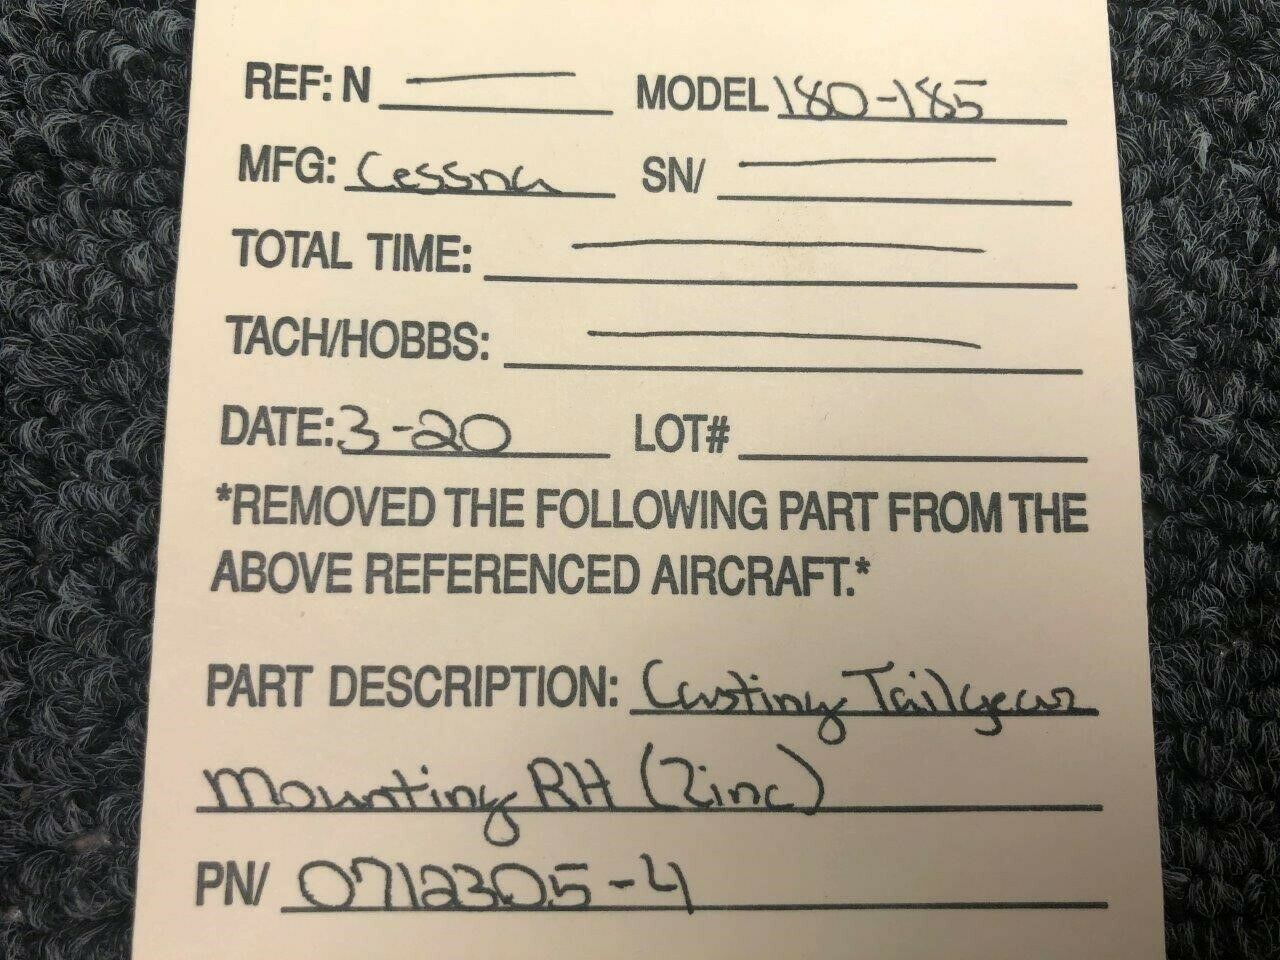 REF: N MODEL 180-185
MFG: Cessna SN/
TOTAL TIME:
TACH/HOBBS:
DATE: 3-20 LOT#
*REMOVED THE FOLLOWING PART FROM THE
ABOVE REFERENCED AIRCRAFT.*
PART DESCRIPTION: Casting Tailgear
Mounting RH (Zinc)
PN/ 0712305-4